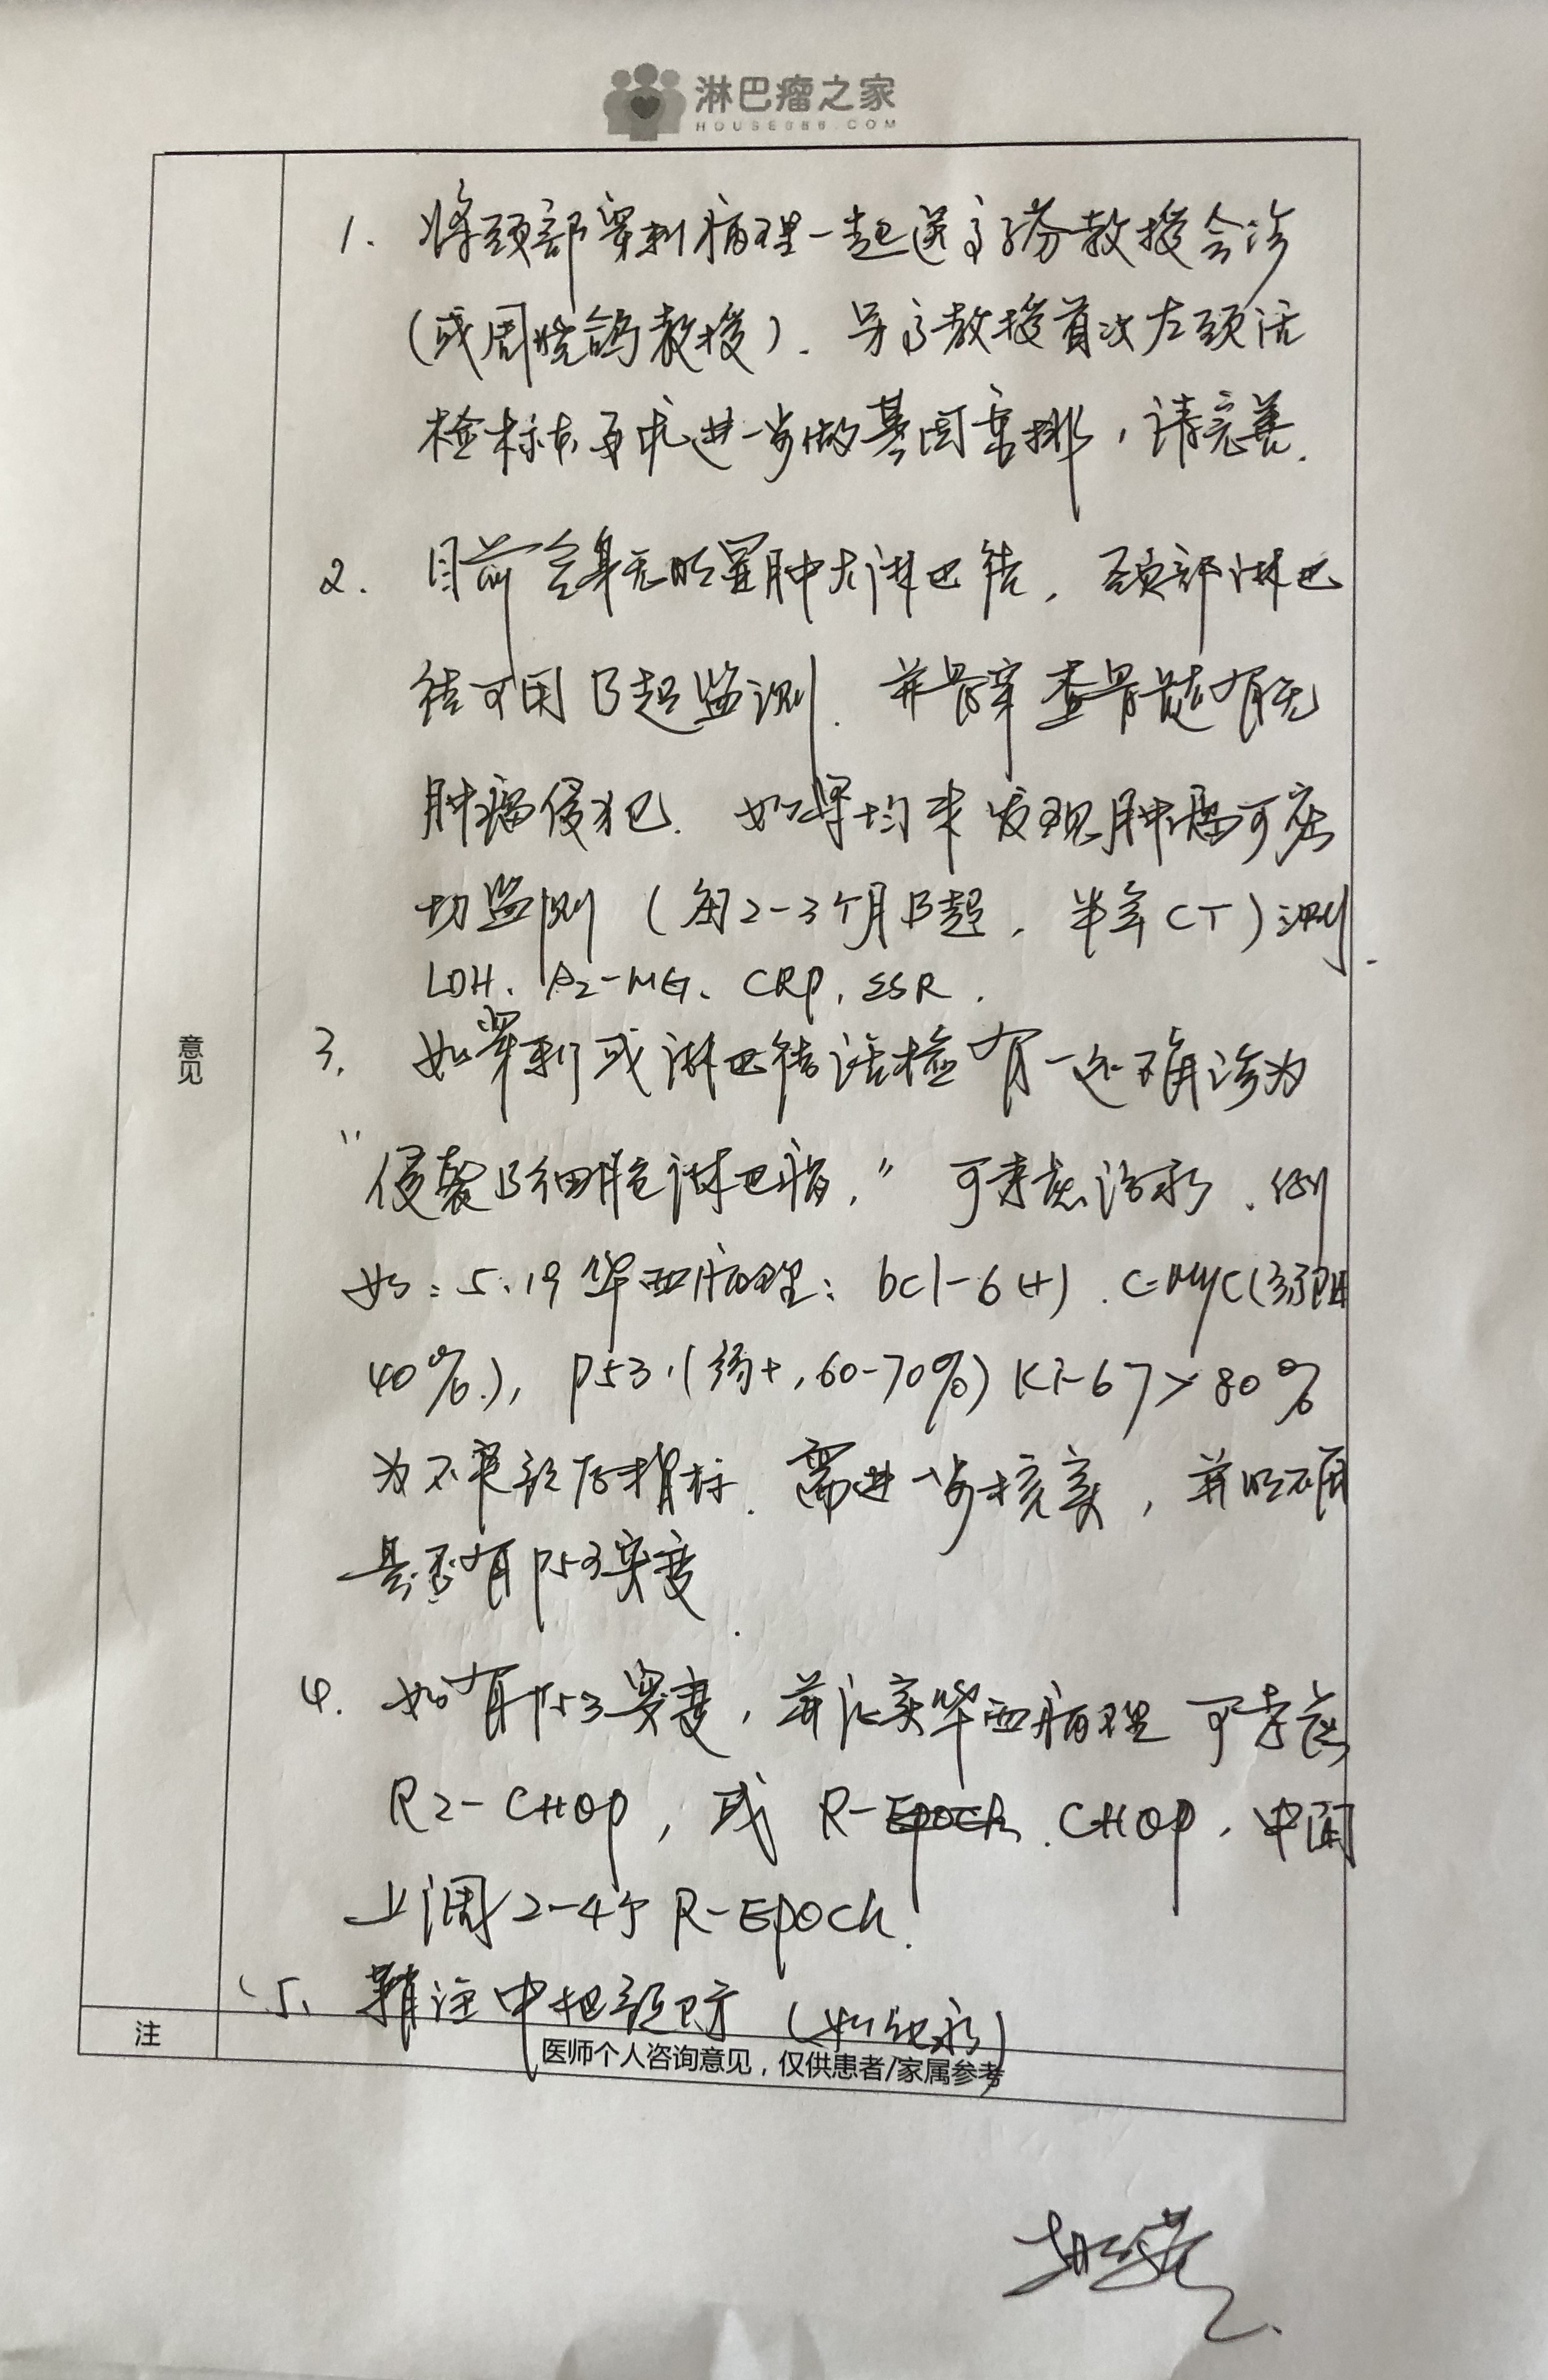 淋巴瘤之家
HOUSE086.COM
1. 将颈部穿刺病理一起送高子芬教授会诊
(或周晓鸽教授). 另高教授首次左颈活
检标本要求进一步做基因重排，请完善.
2. 目前全身无明显肿大淋巴结，颈部淋巴
结可用B超监测. 并骨穿查骨髓有无
肿瘤侵犯. 如果均未发现肿瘤可密
切监测 (每2-3个月B超，半年CT) 测
LDH、β2-MG、CRP, ESR.
3. 如穿刺或淋巴结活检有一处确诊为
意见
“侵袭B细胞淋巴瘤,” 可考虑治疗. 例
如：5.19华西病理：bcl-6(+). C-MYC(弱阳
40%.), P53.(弱+,60-70%) Ki-67>80%
为不良预后指标. 需进一步核实，并明确
是否有P53突变.
4. 如有P53突变，并证实华西病理可考虑
R2-CHOP，或 R-CHOP，中间
上调2-4个R-EPOCH.
5、鞘注中枢预防
注
医师个人咨询意见，仅供患者/家属参考